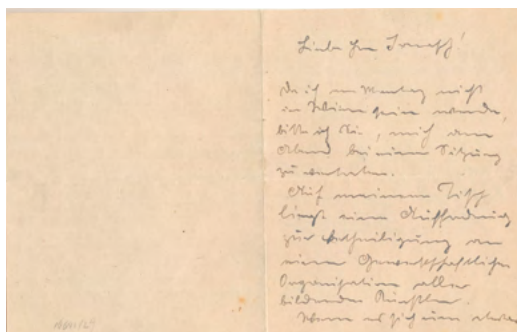 Da ich am Montag nicht
in Wien sein werde,
bitte ich Sie, mich am
Abend bei einer Sitzung
zu vertreten.
Auf meinem Tisch
liegt eine Aufforderung
zur Betheiligung an
einer Gewerkschaftlichen
Organisation aller
bildenden Künstler.
Wenn es sich um